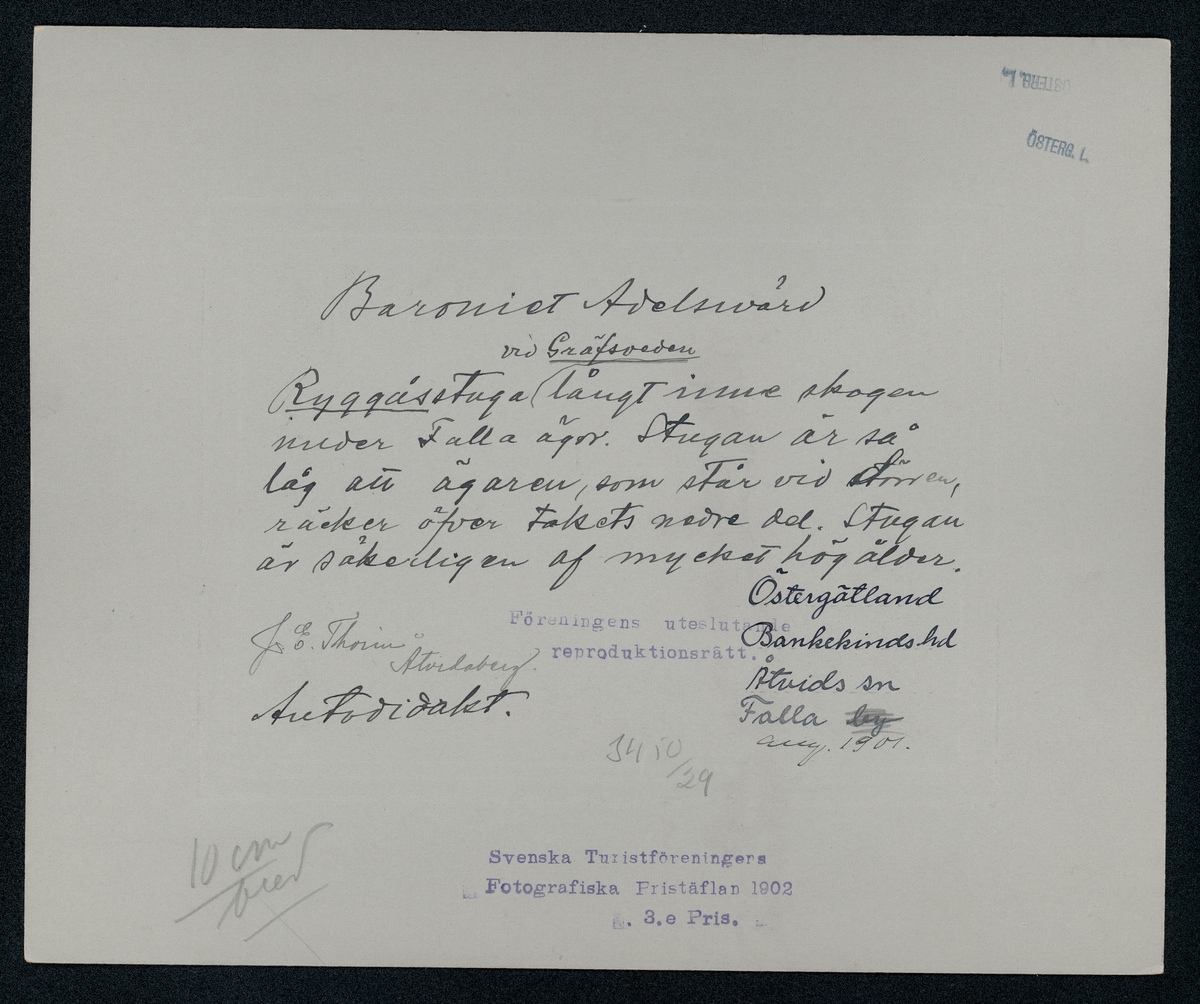 ÖSTERG. L.
ÖSTERG. L.
Baroniet Adelswärd
vid Gräfsveden
Ryggåsstuga (långt inne skogen
under Falla ägor. Stugan är så
låg att ägaren, som står vid dörren,
räcker öfver takets nedre del. Stugan
är säkerligen af mycket hög ålder.
Östergötland
Föreningens uteslutande
Bankekinds hd
reproduktionsrätt.
J. E. Thorin
Åtvidaberg.
Åtvids sn
Autodidakt.
Falla by
aug. 1901.
34 50/29
10 cm
bred
Svenska Turistföreningers
Fotografiska Pristäflan 1902
3.e Pris.